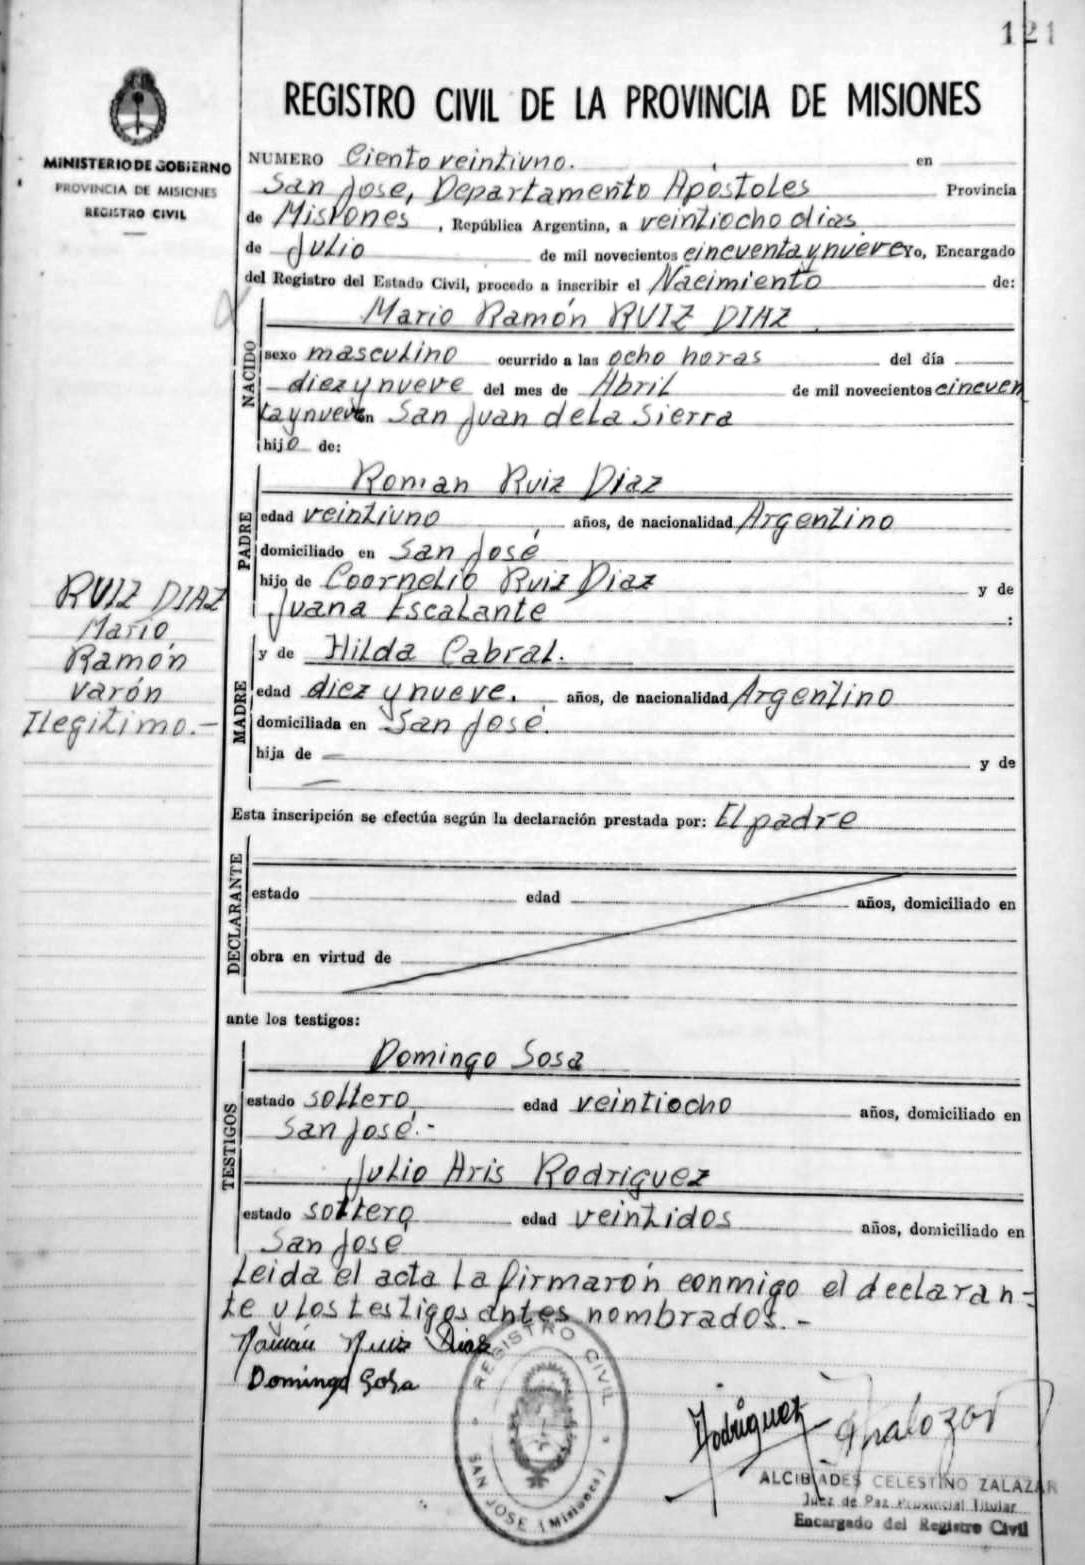 121
REGISTRO CIVIL DE LA PROVINCIA DE MISIONES
MINISTERIO DE GOBIERNO
PROVINCIA DE MISIONES
REGISTRO CIVIL
NUMERO Ciento veintiuno. en
San José, Departamento Apóstoles Provincia
de Misiones, República Argentina, a veintiocho dias
de Julio de mil novecientos cincuenta y nueve Yo, Encargado
del Registro del Estado Civil, procedo a inscribir el Nacimiento de:
NACIDO
Mario Ramón RUIZ DIAZ
sexo masculino ocurrido a las ocho horas del día
diez y nueve del mes de Abril de mil novecientos cincuen
ta y nueve en San Juan de la Sierra
hijo de:
PADRE
Roman Ruiz Diaz
edad veintiuno años, de nacionalidad Argentino
domiciliado en San José
hijo de Coornelio Ruiz Diaz y de
Juana Escalante :
RUIZ DIAZ
Mario
Ramón
varón
Ilegitimo.-
MADRE
y de Hilda Cabral.
edad diez y nueve. años, de nacionalidad Argentino
domiciliada en San José.
hija de — y de
—
Esta inscripción se efectúa según la declaración prestada por: El padre
DECLARANTE
estado edad años, domiciliado en
obra en virtud de
ante los testigos:
TESTIGOS
Domingo Sosa
estado soltero edad veintiocho años, domiciliado en
San José.-
Julio Aris Rodriguez
estado soltero edad veintidos años, domiciliado en
San José
Leida el acta la firmarón conmigo el declaran-
te y los testigos antes nombrados.-
Román Ruiz Diaz
Domingo Sosa
REGISTRO CIVIL
SAN JOSE (Misiones)
Rodriguez
ALCIBIADES CELESTINO ZALAZAR
Juez de Paz Provincial Titular
Encargado del Registro Civil